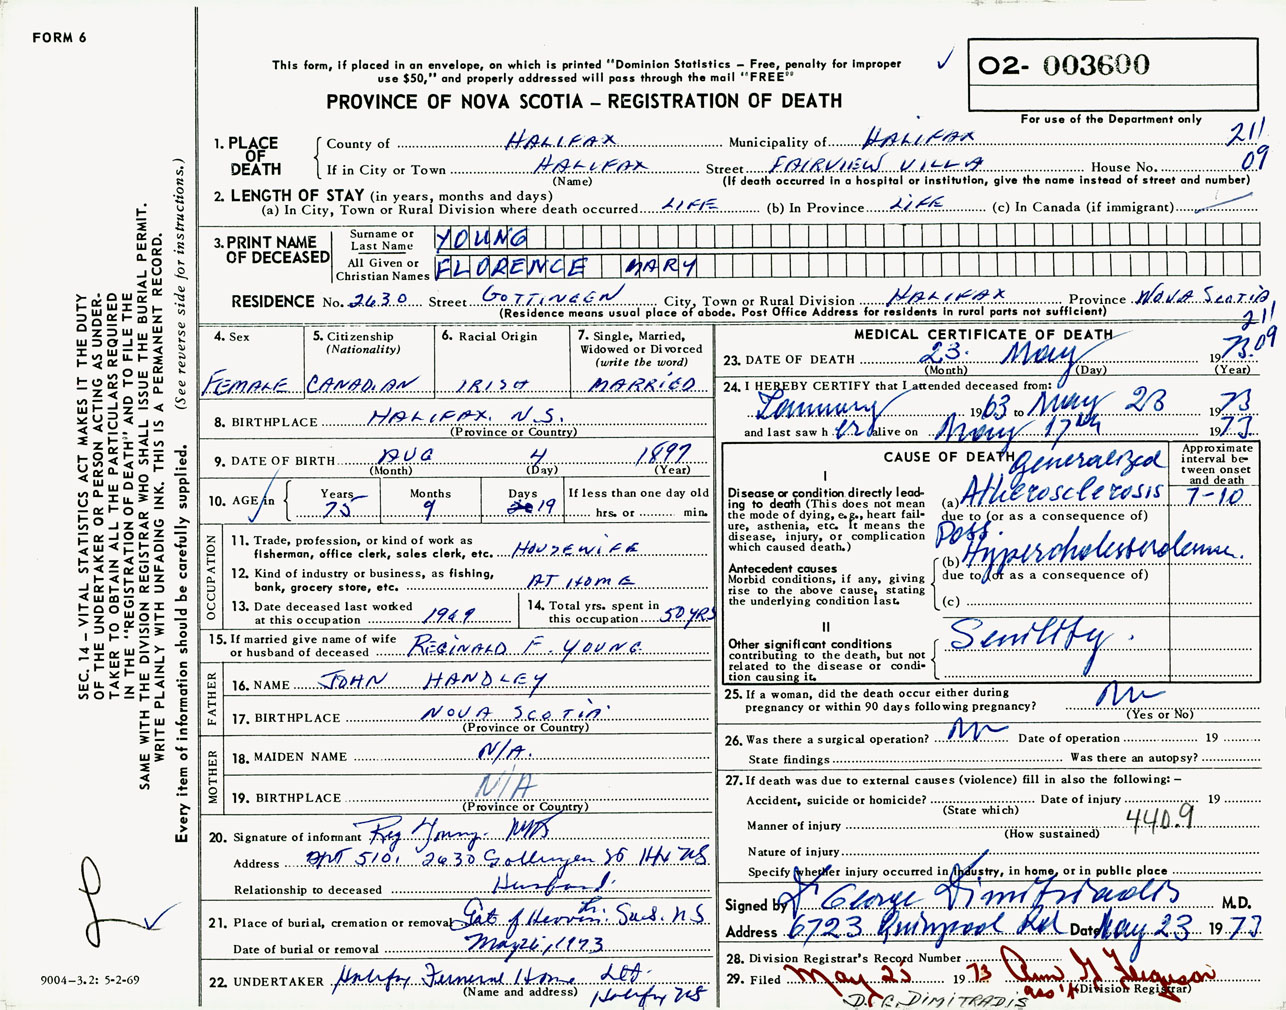 FORM 6
This form, if placed in an envelope, on which is printed "Dominion Statistics – Free, penalty for improper
use $50," and properly addressed will pass through the mail "FREE"
PROVINCE OF NOVA SCOTIA – REGISTRATION OF DEATH
02- 003600
For use of the Department only
211
09
1. PLACE OF DEATH
County of HALIFAX Municipality of HALIFAX
If in City or Town HALIFAX Street FAIRVIEW VILLA House No.
(Name) (If death occurred in a hospital or institution, give the name instead of street and number)
2. LENGTH OF STAY (in years, months and days)
(a) In City, Town or Rural Division where death occurred LIFE (b) In Province LIFE (c) In Canada (if immigrant)
3. PRINT NAME OF DECEASED
Surname or Last Name YOUNG
All Given or Christian Names FLORENCE MARY
RESIDENCE No. 2630 Street GOTTINGEN City, Town or Rural Division HALIFAX Province NOVA SCOTIA
(Residence means usual place of abode. Post Office Address for residents in rural parts not sufficient)
211
09
4. Sex FEMALE
5. Citizenship (Nationality) CANADIAN
6. Racial Origin IRISH
7. Single, Married, Widowed or Divorced (write the word) MARRIED
8. BIRTHPLACE HALIFAX. N.S.
(Province or Country)
9. DATE OF BIRTH AUG 4 1897
(Month) (Day) (Year)
10. AGE in Years 75 Months 9 Days 19 If less than one day old hrs. or min.
OCCUPATION
11. Trade, profession, or kind of work as
fisherman, office clerk, sales clerk, etc. HOUSEWIFE
12. Kind of industry or business, as fishing,
bank, grocery store, etc. AT HOME
13. Date deceased last worked
at this occupation 1969
14. Total yrs. spent in
this occupation 50 YRS
15. If married give name of wife
or husband of deceased REGINALD F. YOUNG
FATHER
16. NAME JOHN HANDLEY
17. BIRTHPLACE NOVA SCOTIA
(Province or Country)
MOTHER
18. MAIDEN NAME N/A.
19. BIRTHPLACE N/A
(Province or Country)
20. Signature of informant Reg Young.
Address APT 5101 2630 Gottingen St Hfx NS
Relationship to deceased Husband.
21. Place of burial, cremation or removal Gate of Heaven: Sack. N.S
Date of burial or removal May 26, 1973
22. UNDERTAKER Halifax Funeral Home Ltd.
(Name and address) Halifax NS
MEDICAL CERTIFICATE OF DEATH
23. DATE OF DEATH 23. May 1973.
(Month) (Day) (Year)
24. I HEREBY CERTIFY that I attended deceased from:
January 1963 to May 23 1973
and last saw her alive on May 17th 1973
CAUSE OF DEATH
Approximate interval between onset and death
I
Disease or condition directly leading to death (This does not
mean the mode of dying, e.g., heart failure, asthenia, etc. It means the
disease, injury, or complication
which caused death.)
Generalized
(a) Atherosclerosis 7-10
due to (or as a consequence of)
Poss.
(b) Hypercholesterolemia.
due to (or as a consequence of)
(c)
Antecedent causes
Morbid conditions, if any, giving
rise to the above cause, stating
the underlying condition last.
II
Other significant conditions
contributing to the death, but not
related to the disease or condition causing it.
Senility.
25. If a woman, did the death occur either during
pregnancy or within 90 days following pregnancy? No
(Yes or No)
26. Was there a surgical operation? No Date of operation 19
State findings Was there an autopsy?
27. If death was due to external causes (violence) fill in also the following: –
Accident, suicide or homicide? Date of injury 19
(State which)
Manner of injury 440.9
(How sustained)
Nature of injury
Specify whether injury occurred in Industry, in home, or in public place
Signed by George Dimitriadis M.D.
Address 6723 Quinpool Rd Date May 23 1973
28. Division Registrar's Record Number
29. Filed May 25 1973 Ann G Ferguson
(Division Registrar)
DR. G. DIMITRADIS
SEC. 14 – VITAL STATISTICS ACT MAKES IT THE DUTY
OF THE UNDERTAKER OR PERSON ACTING AS UNDERTAKER
TO OBTAIN ALL THE PARTICULARS REQUIRED
IN THE "REGISTRATION OF DEATH" AND TO FILE THE
SAME WITH THE DIVISION REGISTRAR WHO SHALL ISSUE THE BURIAL PERMIT.
WRITE PLAINLY WITH UNFADING INK. THIS IS A PERMANENT RECORD.
Every item of information should be carefully supplied. (See reverse side for instructions.)
9004-3.2: 5-2-69